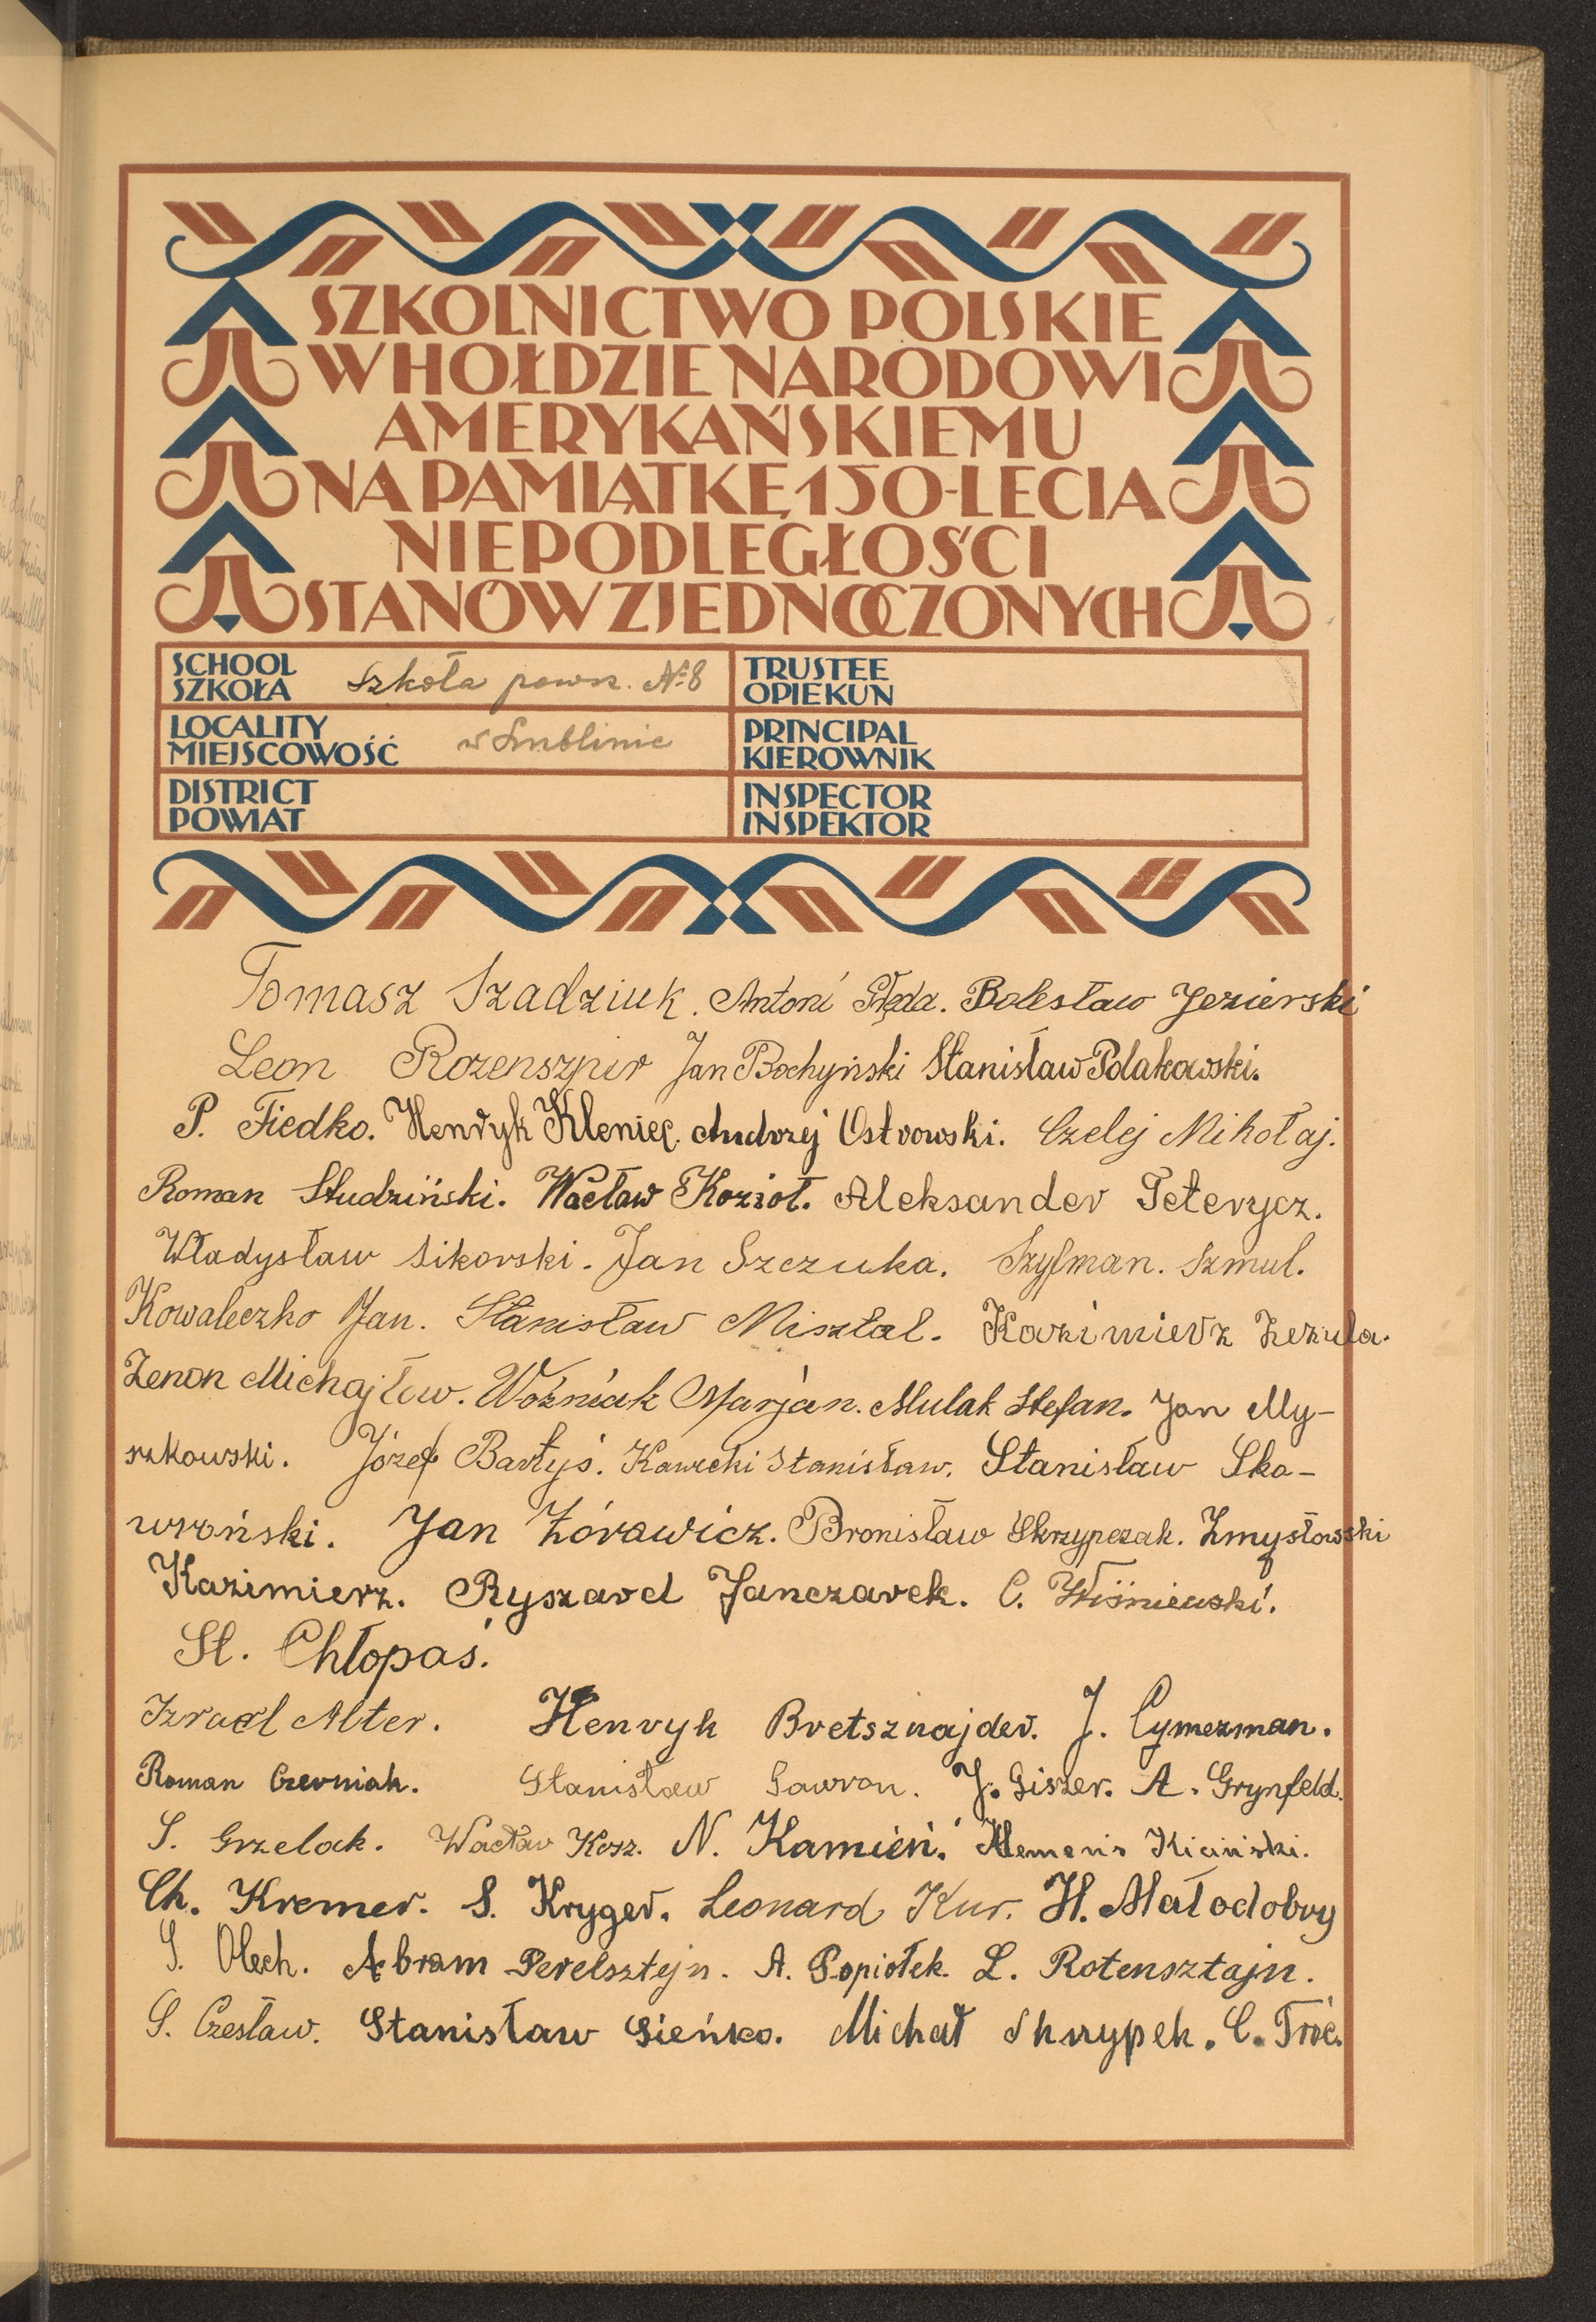 SZKOLNICTWO POLSKIE
W HOŁDZIE NARODOWI
AMERYKAŃSKIEMU
NA PAMIĄTKĘ 150-LECIA
NIEPODLEGŁOŚCI
STANÓW ZJEDNOCZONYCH
SCHOOL
SZKOŁA Szkoła powsz. № 8
TRUSTEE
OPIEKUN
LOCALITY
MIEJSCOWOŚĆ w Lublinie
PRINCIPAL
KIEROWNIK
DISTRICT
POWIAT
INSPECTOR
INSPEKTOR
Tomasz Szadziuk. Antoni Bolesław Jezierski
Leon Rozenszpir Jan Bochyński Stanisław Polakowski.
P. Fiedko. Henryk Kleniec. Andrzej Ostrowski. Czelej Mikołaj.
Roman Studziński. Wacław Kozioł. Aleksander Peterycz.
Władysław Sikorski. Jan Szczuka. Szyfman. Szmul.
Kowaleczko Jan. Stanisław Misztal. Kazimierz Zezula.
Zenon Michajłow. Woźniak Marjan. Mulak Stefan. Jan My-
szkowski. Józef Bartyś. Kawecki Stanisław. Stanisław Sko-
wroński. Jan Żórawicz. Bronisław Skrzypczak. Zmysłowski
Kazimierz. Ryszard Janczarek. C. Wiśniewski.
St. Chłopaś.
Izrael Alter. Henryk Bretsznajder. J. Cymerman.
Roman Czerniak. Stanisław Gawron. J. Giszer. A. Grynfeld.
S. Grzelak. Wacław Kosz. N. Kamień. Klemens Kiciński.
Ch. Kremer. S. Kryger. Leonard Kur. H. Małodobry
S. Olech. Abram Perelsztejn. A. Popiołek. L. Rotensztajn.
S. Czesław. Stanisław Sieńko. Michał Skrzypek. C. Troć.